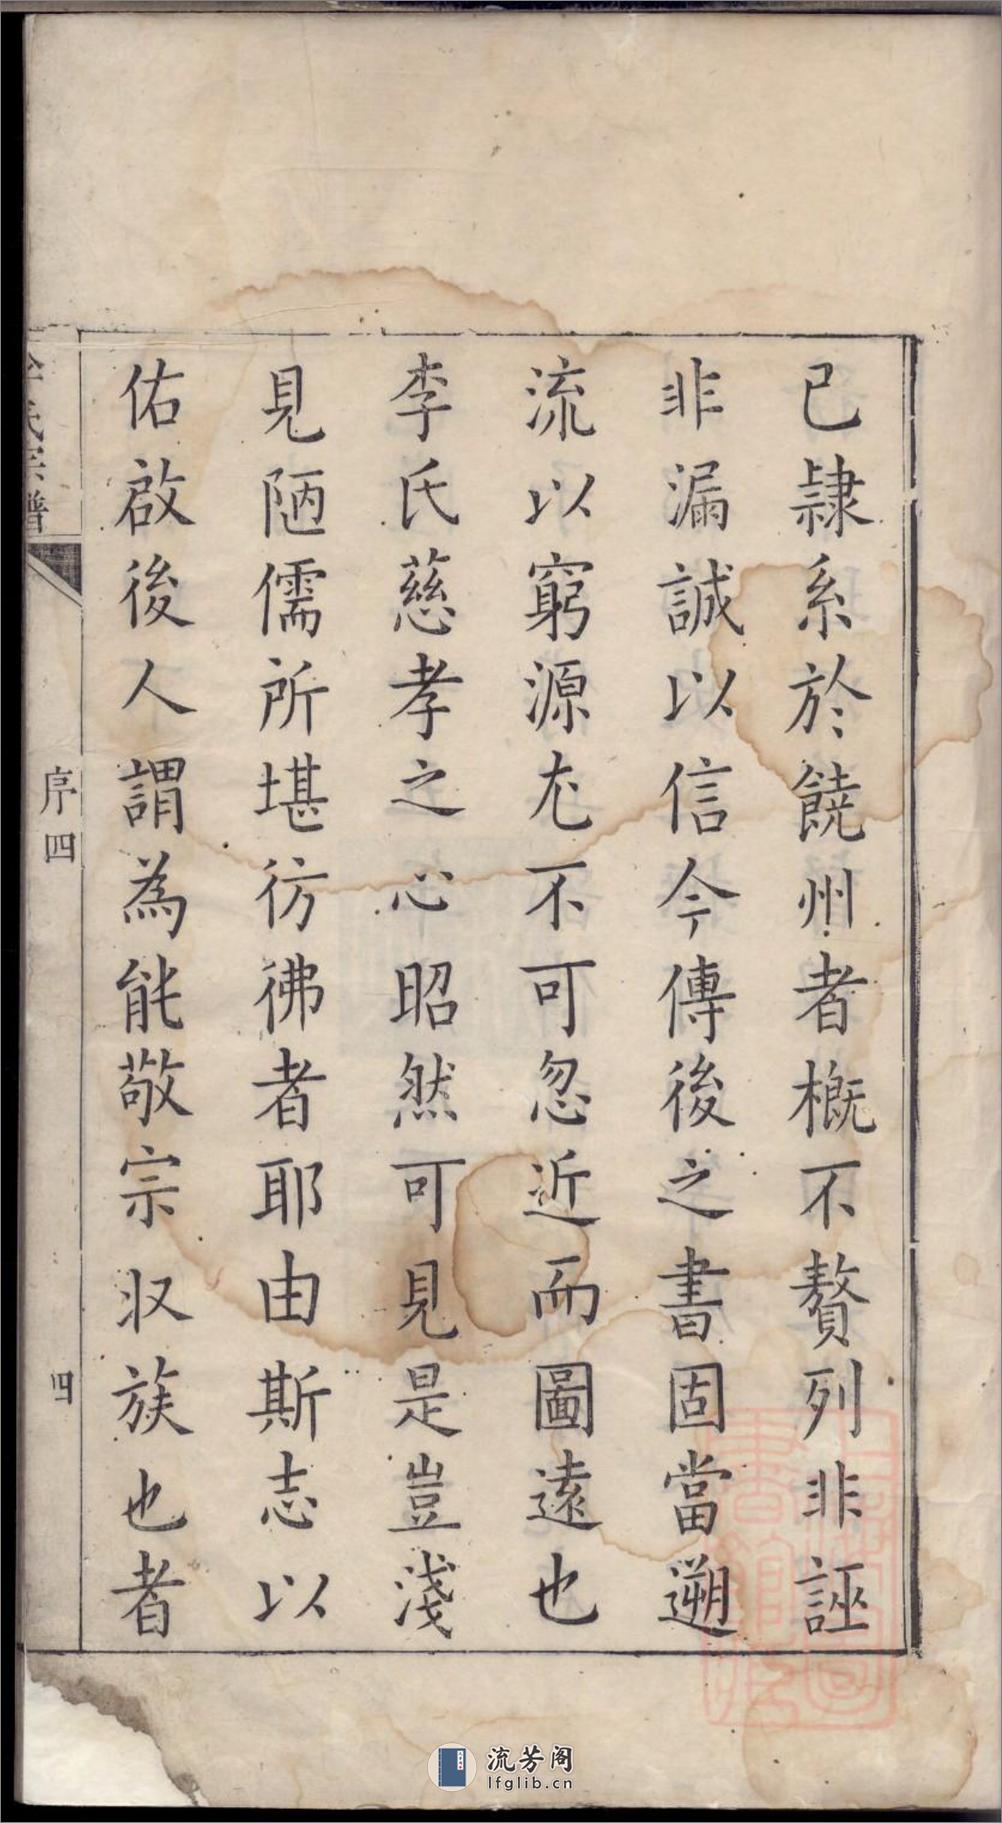 已隷系於饒州者概不贅列非誣
非漏誠以信今傳後之書固當遡
流以窮源尤不可忽近而圖遠也
李氏慈孝之心昭然可見是豈淺
見陋儒所堪彷彿者耶由斯志以
佑啟後人謂為能敬宗収族也者
氏宗譜
序四
四
流芳阁
lfglib.cn